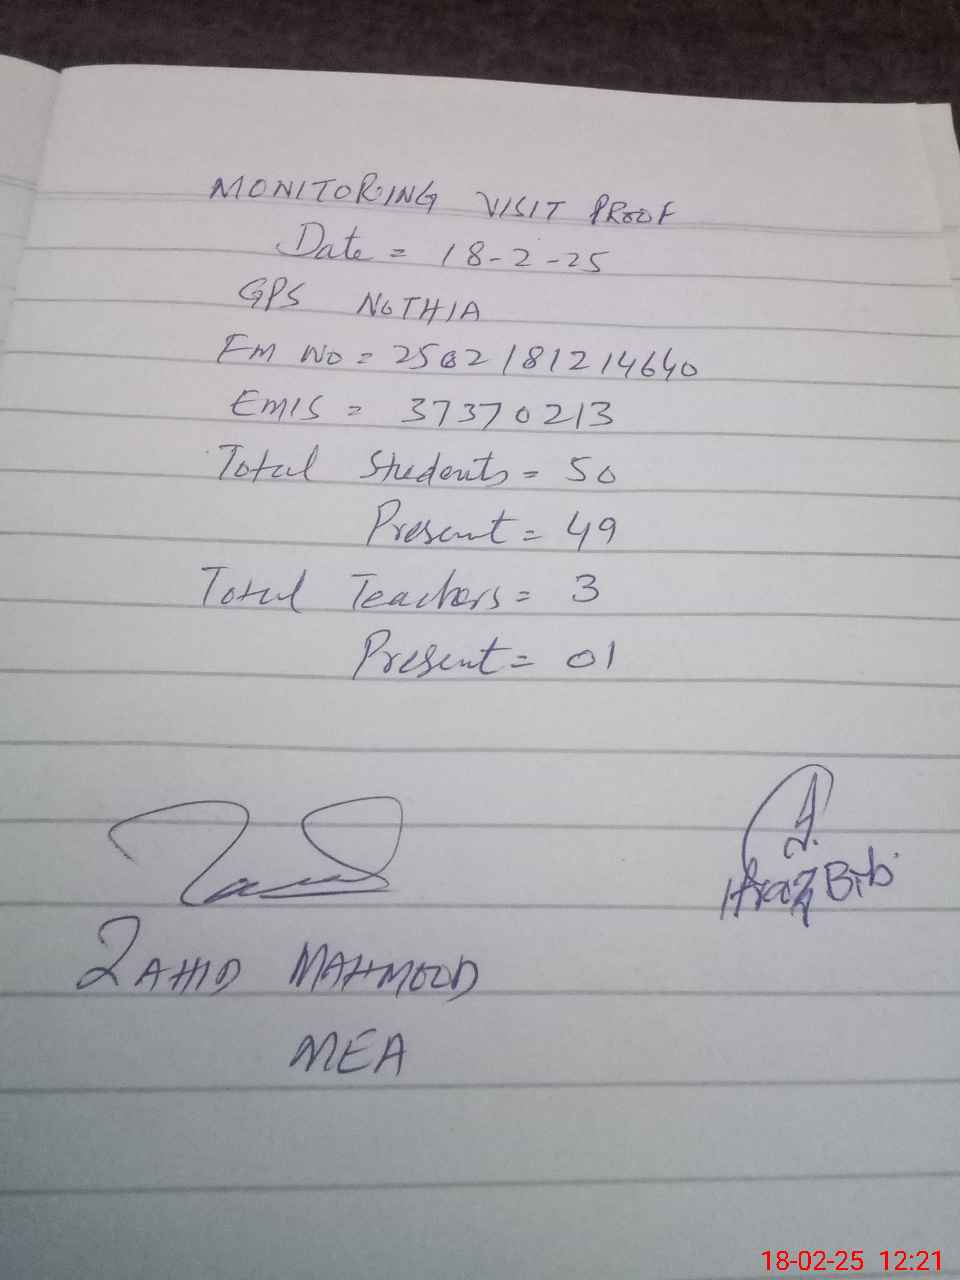 MONITORING VISIT PROOF
Date = 18-2-25
GPS NOTHIA
FM NO = 2502181214640
EMIS = 37370213
Total Students = 50
Present = 49
Total Teachers = 3
Present = 01
ZAHID MAHMOOD
MEA
Bibi
18-02-25 12:21